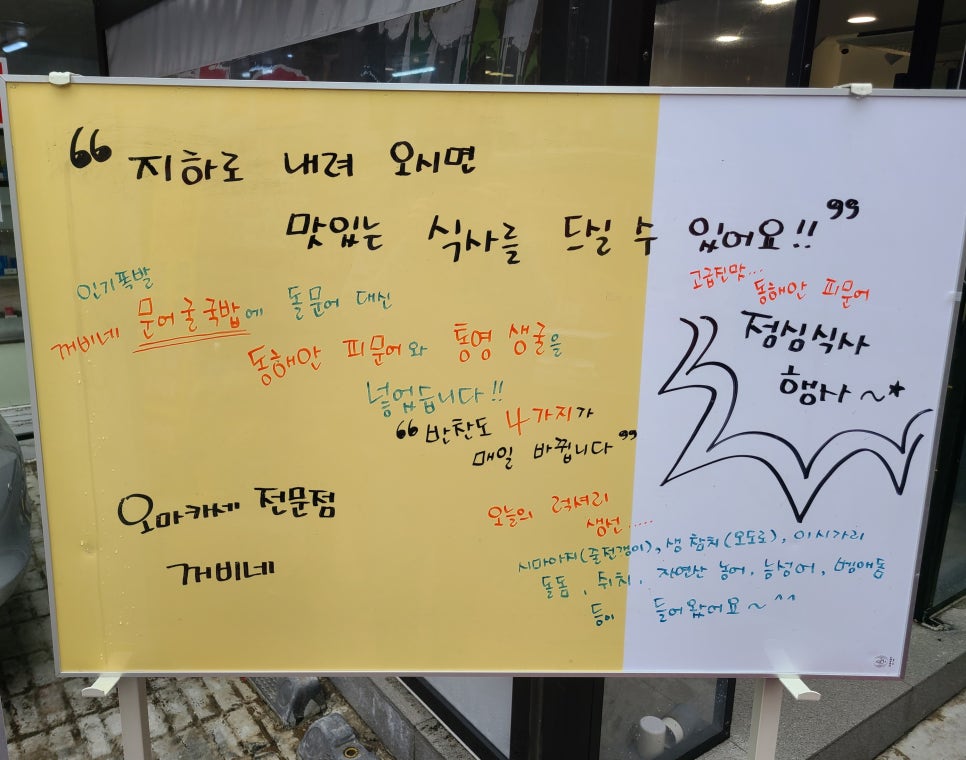 “ 지하로 내려 오시면
맛있는 식사를 드실 수 있어요!! ”
인기폭발
꺼비네 문어굴국밥에 돌문어 대신
동해안 피문어와 통영 생굴을
넣었습니다!!
“ 반찬도 4가지가
매일 바뀝니다 ”
고급진맛...
동해안 피문어
점심식사
행사~★
오마카세 전문점
꺼비네
오늘의 럭셔리
생선.....
시마아지(줄전갱이), 생참치(오도로), 이시가리
돌돔, 쥐치, 자연산 농어, 능성어, 벵에돔
등이 들어왔어요~^^